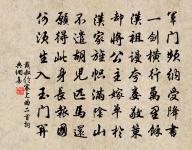 軍門頻納受降書
一劍橫行萬里餘
漢祖謾夸婁敬策
却將公主嫁單于
漢家旌幟滿陰山
不遣胡兒匹馬還
願得此身長報國
何須生入玉門
戴叔倫塞上曲二首